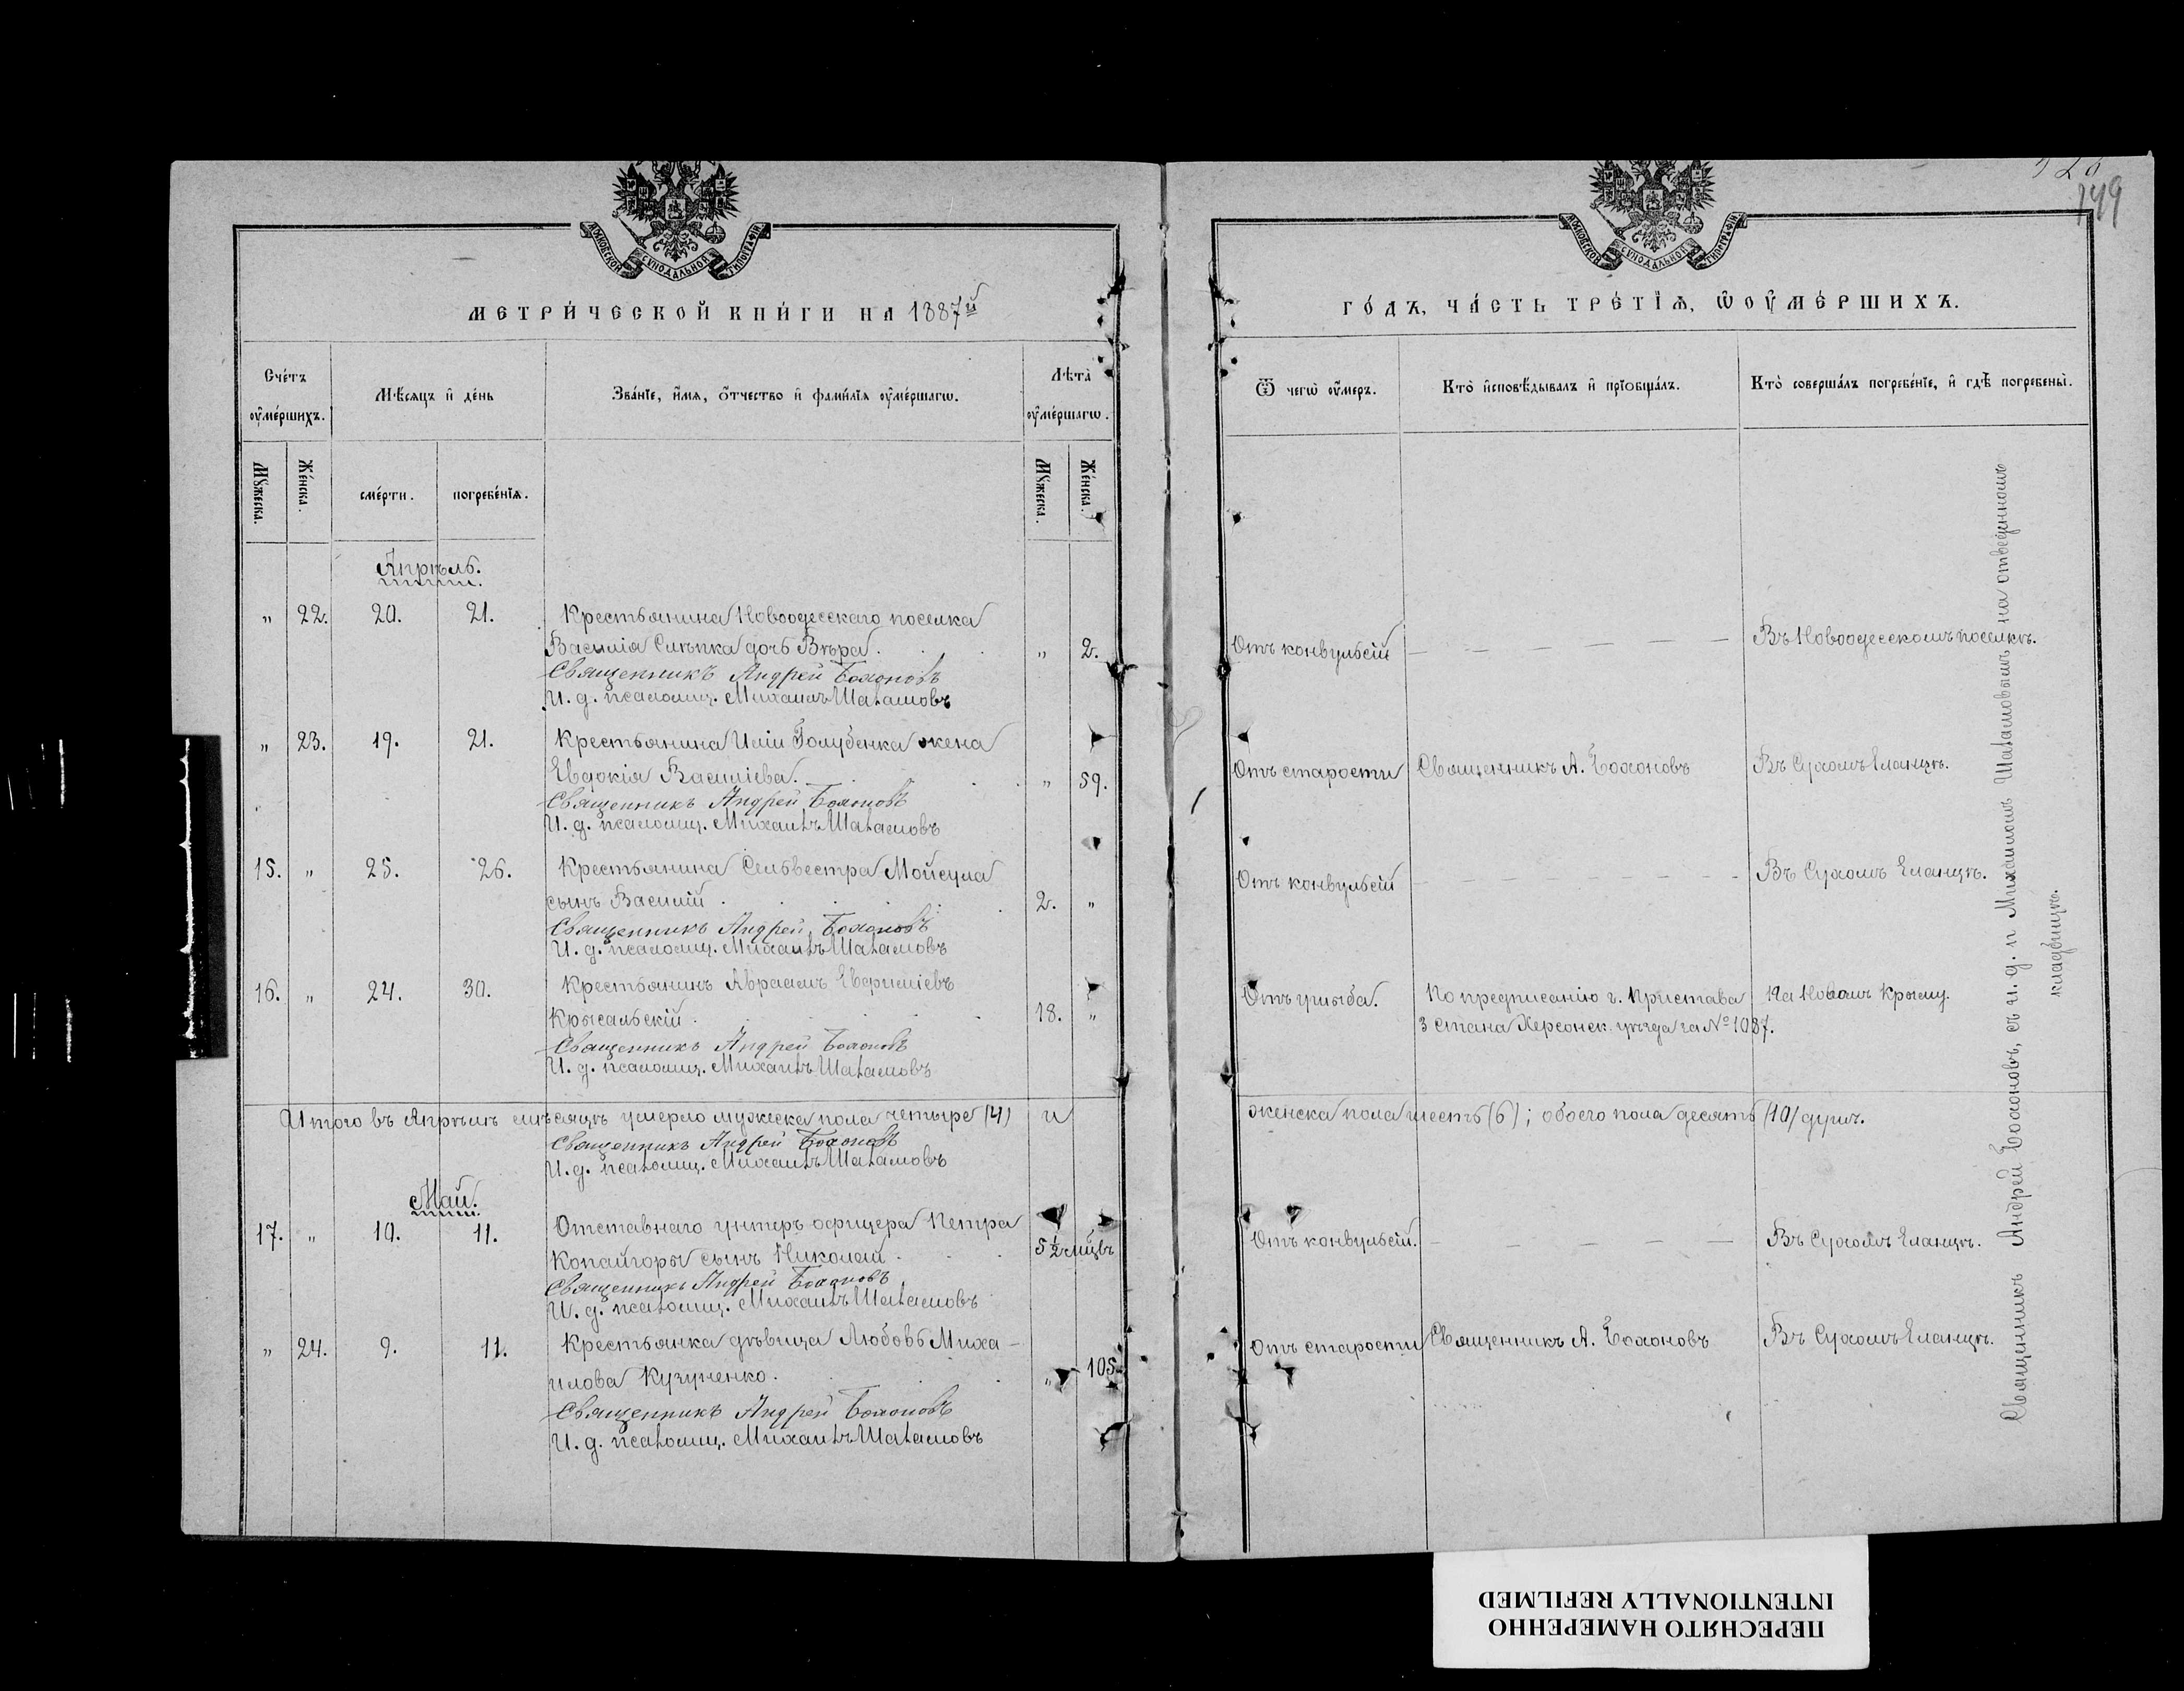 МОСКОВСКОЙ СѴНОДАЛЬНОЙ ТИПОГРАФІИ
МЕТРИ́ЧЕСКОЙ КНИ́ГИ НА 1887й
Сче́тъ ᲂу҆ме́ршихъ.
Мѣ́сяцъ и҆ де́нь
Зва́нїе, и҆́мѧ, ѻ҆́тчество и҆ фами́лїѧ ᲂу҆ме́ршагѡ.
Лѣ́та ᲂу҆ме́ршагѡ.
Мꙋ́жеска.
Же́нска.
сме́рти.
погребе́нїѧ.
Мꙋ́жеска.
Же́нска.
Апрѣль.
„ 22. 20. 21. Крестьянина Новоодесскаго поселка
Василія Слѣпка дочь Вѣра. „ 2.
Священникъ Андрей Бохоновъ
И. д. псаломщ. Михаилъ Шаламовъ
„ 23. 19. 21. Крестьянина Иліи Голубенка жена
Евдокія Василіева. „ 59.
Священникъ Андрей Бохоновъ
И. д. псаломщ. Михаилъ Шаламовъ
15. „ 25. 26. Крестьянина Сельвестра Мойсула
сынъ Василій 2. „
Священникъ Андрей Бохоновъ
И. д. псаломщ. Михаилъ Шаламовъ
16. „ 24. 30. Крестьянинъ Авраамъ Евфиміевъ
Крысальскій 18. „
Священникъ Андрей Бохоновъ
И. д. псаломщ. Михаилъ Шаламовъ
Итого въ Апрѣлѣ мѣсяцѣ умерло мужеска пола четыре (4) и
Священникъ Андрей Бохоновъ
И. д. псаломщ. Михаилъ Шаламовъ
Май.
17. „ 10. 11. Отставнаго унтеръ офицера Петра
Копайгоры сынъ Николай 5½ мцвъ
Священникъ Андрей Бохоновъ
И. д. псаломщ. Михаилъ Шаламовъ
„ 24. 9. 11. Крестьянка дѣвица Любовь Миха-
илова Кузуненко. „ 105.
Священникъ Андрей Бохоновъ
И. д. псаломщ. Михаилъ Шаламовъ
149
МОСКОВСКОЙ СѴНОДАЛЬНОЙ ТИПОГРАФІИ
ГО́ДЪ, ЧА́СТЬ ТРЕ́ТЇѦ, Ѡ ОУ҆МЕ́РШИХЪ.
Ѿ чегѡ̀ ᲂу҆́меръ.
Кто̀ и҆сповѣ́дывалъ и҆ прїѻбща́лъ.
Кто̀ соверша́лъ погребе́нїе, и҆ гдѣ̀ погребены̀.
Отъ конвульсій Въ Новоодесскомъ поселкѣ.
Отъ старости Священникъ А. Бохоновъ Въ Сухомъ Еланцѣ.
Отъ конвульсій Въ Сухомъ Еланцѣ.
Отъ ушыба. По предписанію г. Пристава На Новомъ Крыму.
3 стана Херсонск. уѣзда за № 1087.
женска пола шесть (6); обоего пола десять (10) душъ.
Отъ конвульсій. Въ Сухомъ Еланцѣ.
Отъ старости Священникъ А. Бохоновъ Въ Сухомъ Еланцѣ.
Священникъ Андрей Бохоновъ, съ и. д. п. Михаиломъ Шаламовымъ на отведенномъ
кладбищѣ.
ПЕРЕСНЯТО НАМЕРЕННО
INTENTIONALLY REFILMED